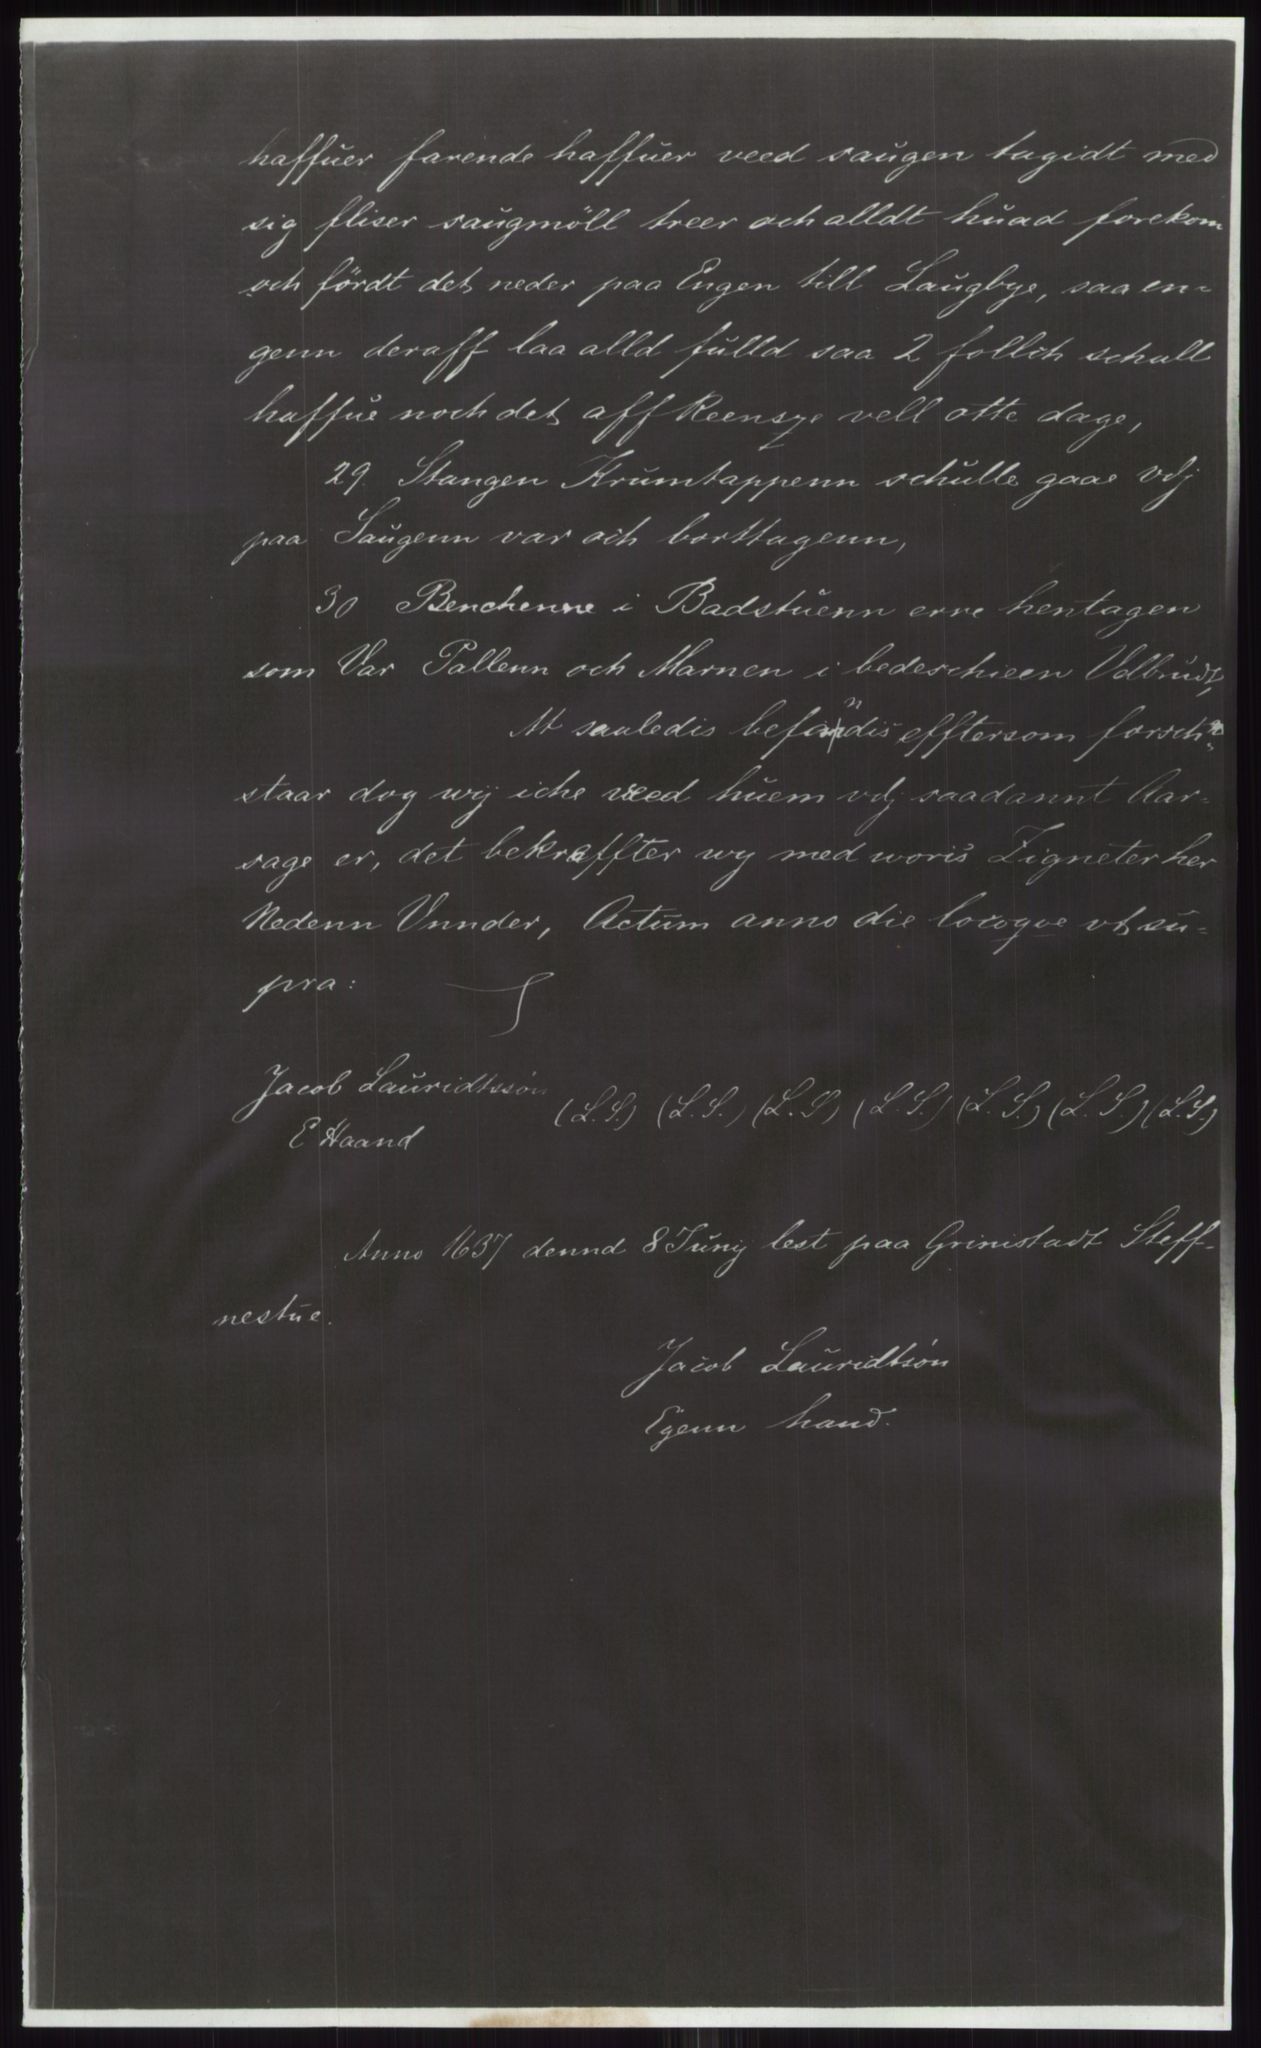 haffuer farende haffuer veed saugen tagidt med
sig fliser saugmöll treer och alldt huad forekom
och fördt det neder paa Engen till Laugbye, saa en-
genn deraff laa alld fulld saa 2 follch schall
haffue noch det aff Reensze vell otte dage,
29. Stangen Krumtappenn schulle gaae vdj
paa Saugenn var och borttagenn,
30 Benchenne i Badstuenn erre hentagen
som Var Pallenn och Marnen i bedeschieen Vdbrudt,
At saaledis befandis efftersom forsch:
staar dog wij iche veed huem vdj saadannt Aar-
sage er, det bekreffter wy med woris Zigneter her
Nedenn Vnnder, Actum anno die locoqve vt su-
pra:
Jacob Lauridtssön
E Haand
(L.S.) (L.S.) (L.S.) (L.S.) (L.S.) (L.S.) (L.S.)
Anno 1637 dennd 8 Junij lest paa Grinistadt Steff-
nestue.
Jacob Lauridtsön
Egenn hand.